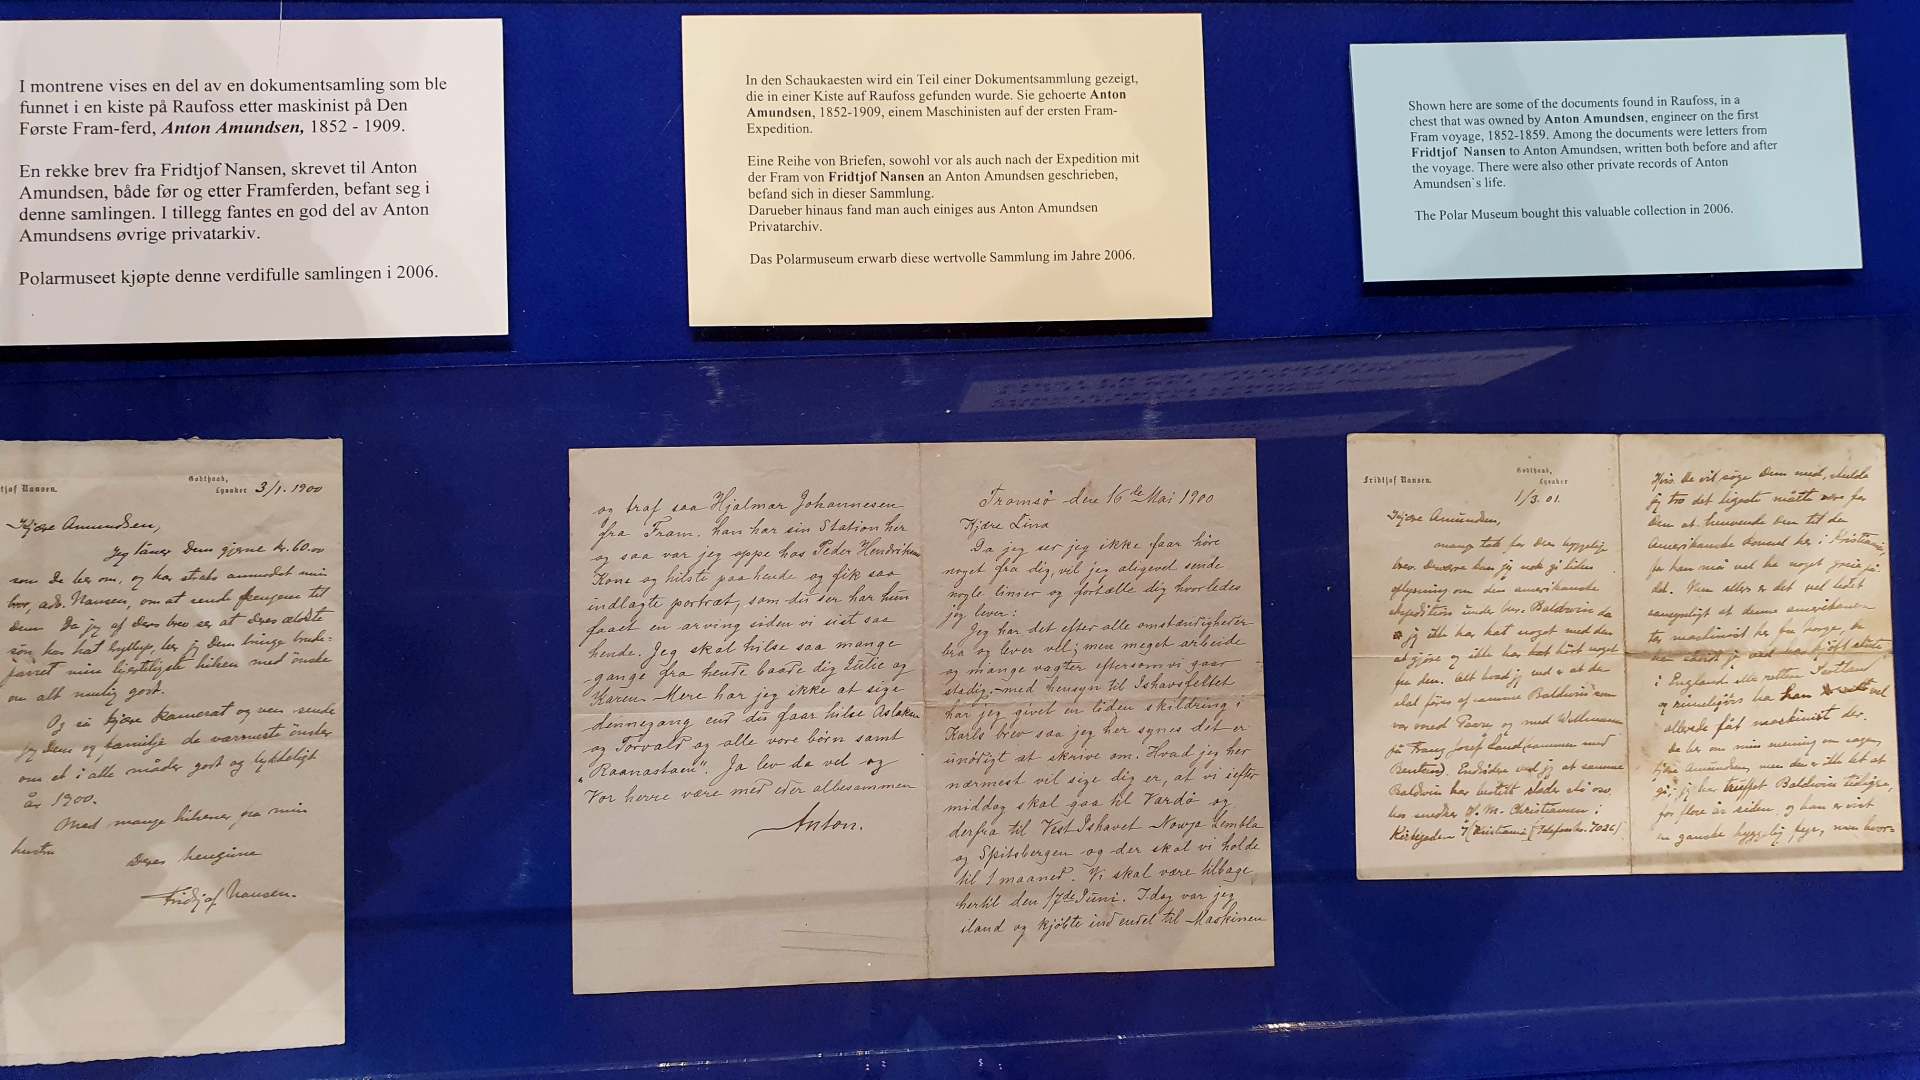 I montrene vises en del av en dokumentsamling som ble
funnet i en kiste på Raufoss etter maskinist på Den
Første Fram-ferd, Anton Amundsen, 1852 - 1909.
En rekke brev fra Fridtjof Nansen, skrevet til Anton
Amundsen, både før og etter Framferden, befant seg i
denne samlingen. I tillegg fantes en god del av Anton
Amundsens øvrige privatarkiv.
Polarmuseet kjøpte denne verdifulle samlingen i 2006.
In den Schaukaesten wird ein Teil einer Dokumentsammlung gezeigt,
die in einer Kiste auf Raufoss gefunden wurde. Sie gehoerte Anton
Amundsen, 1852-1909, einem Maschinisten auf der ersten Fram-
Expedition.
Eine Reihe von Briefen, sowohl vor als auch nach der Expedition mit
der Fram von Fridtjof Nansen an Anton Amundsen geschrieben,
befand sich in dieser Sammlung.
Darueber hinaus fand man auch einiges aus Anton Amundsen
Privatarchiv.
Das Polarmuseum erwarb diese wertvolle Sammlung im Jahre 2006.
Shown here are some of the documents found in Raufoss, in a
chest that was owned by Anton Amundsen, engineer on the first
Fram voyage, 1852-1859. Among the documents were letters from
Fridtjof Nansen to Anton Amundsen, written both before and after
the voyage. There were also other private records of Anton
Amundsen`s life.
The Polar Museum bought this valuable collection in 2006.
tjof Nansen.
Godthaab,
Lysaker 3/1. 1900
Kjære Amundsen,
Jeg låner Dem gjerne kr. 60.00
som De ber om, og har straks anmodet min
bror, adv. Nansen, om at sende pengene til
Dem. Da jeg af Deres brev ser at Deres ældste
søn har hat bryllup, ber jeg Dem bringe brude-
parret min hjerteligste hilsen med ønske
om alt mulig godt.
Og så kjære kamerat og ven sende
jeg Dem og familje de varmeste ønsker
om et i alle måder godt og lykkeligt
år 1900.
Med mange hilsener fra min
hustru
Deres hengivne
Fridtjof Nansen.
og traf saa Hjalmar Johannesen
fra Fram. han har sin Station her
og saa var jeg oppe hos Peder Hendriksens
Kone og hilste paa hende og fik saa
indlagte portræt, som du ser har hun
faaet en arving siden vi sist saa
hende. Jeg skal hilse saa mange
gange fra hende baade dig Julie og
Karen. Mere har jeg ikke at sige
dennegang end du faar hilse Aslaken
og Torvald og alle vore børn samt
"Raanastaen". Ja lev da vel og
Vor herre være med eder allesammen
Anton.
Tromsø den 16de Mai 1900
Kjære Lina
Da jeg ser jeg ikke faar høre
noget fra dig, vil jeg aligevel sende
nogle linier og fortælle dig hvorledes
jeg lever:
Jeg har det efter alle omstændigheder
bra og lever vel; men meget arbeide
og mange vagter eftersom vi gaar
stadig. med hensyn til Ishavsfeltet
har jeg givet en liden skildring i
Karls brev saa jeg her synes det er
unødigt at skrive om. Hvad jeg her
nærmest vil sige dig er, at vi iefter
middag skal gaa til Vardø og
derfra til Vest Ishavet Novja Zembla
og Spitsbergen og der skal vi holde
til 1 maaned. Vi skal være tilbage
hertil den 17de Juni. Idag var jeg
iland og kjøbte ind endel til Maskinen
Fridtjof Nansen.
Godthaab,
Lysaker
1/3. 01.
Kjære Amundsen,
mange tak for Deres hyggelige
brev. Desværre kan jeg nok gi liden
oplysning om den amerikanske
ekspedition under hr. Baldwin da
jeg ikke har hat noget med den
at gjøre og ikke har hørt noget
fra den. Alt hvad jeg ved er at den
skal føres af samme Baldwin som
var med Peary og med Wellmann
på Franz Josef Land sammen med
Bentsen. Endvidere ved jeg at samme
Baldwin har bestilt slæder etc. osv.
hos snedker O. M. Christiansen i
Kirkegaden 7 Kristiania (Telefon No. 7026)
Hvis De vil søge Dem med, skulde
jeg tro det ligeste måtte være for
Dem at henvende Dem til den
Amerikanske konsul her i Kristiania,
for han må vel ha noget greie på
det. Men ellers er det vel lidet
sansynligt at denne amerikaneren
tar maskinist her fra Norge, da
i England eller rettere Skotland
og rimeligvis har han vel
allerede fåt maskinist der.
De ber om min mening om sagen,
kjære Amundsen, men den er ikke let at
gi; jeg har truffet Baldwin tidligere,
for flere år siden, og han er vist
en ganske hyggelig fyr, men hvor-